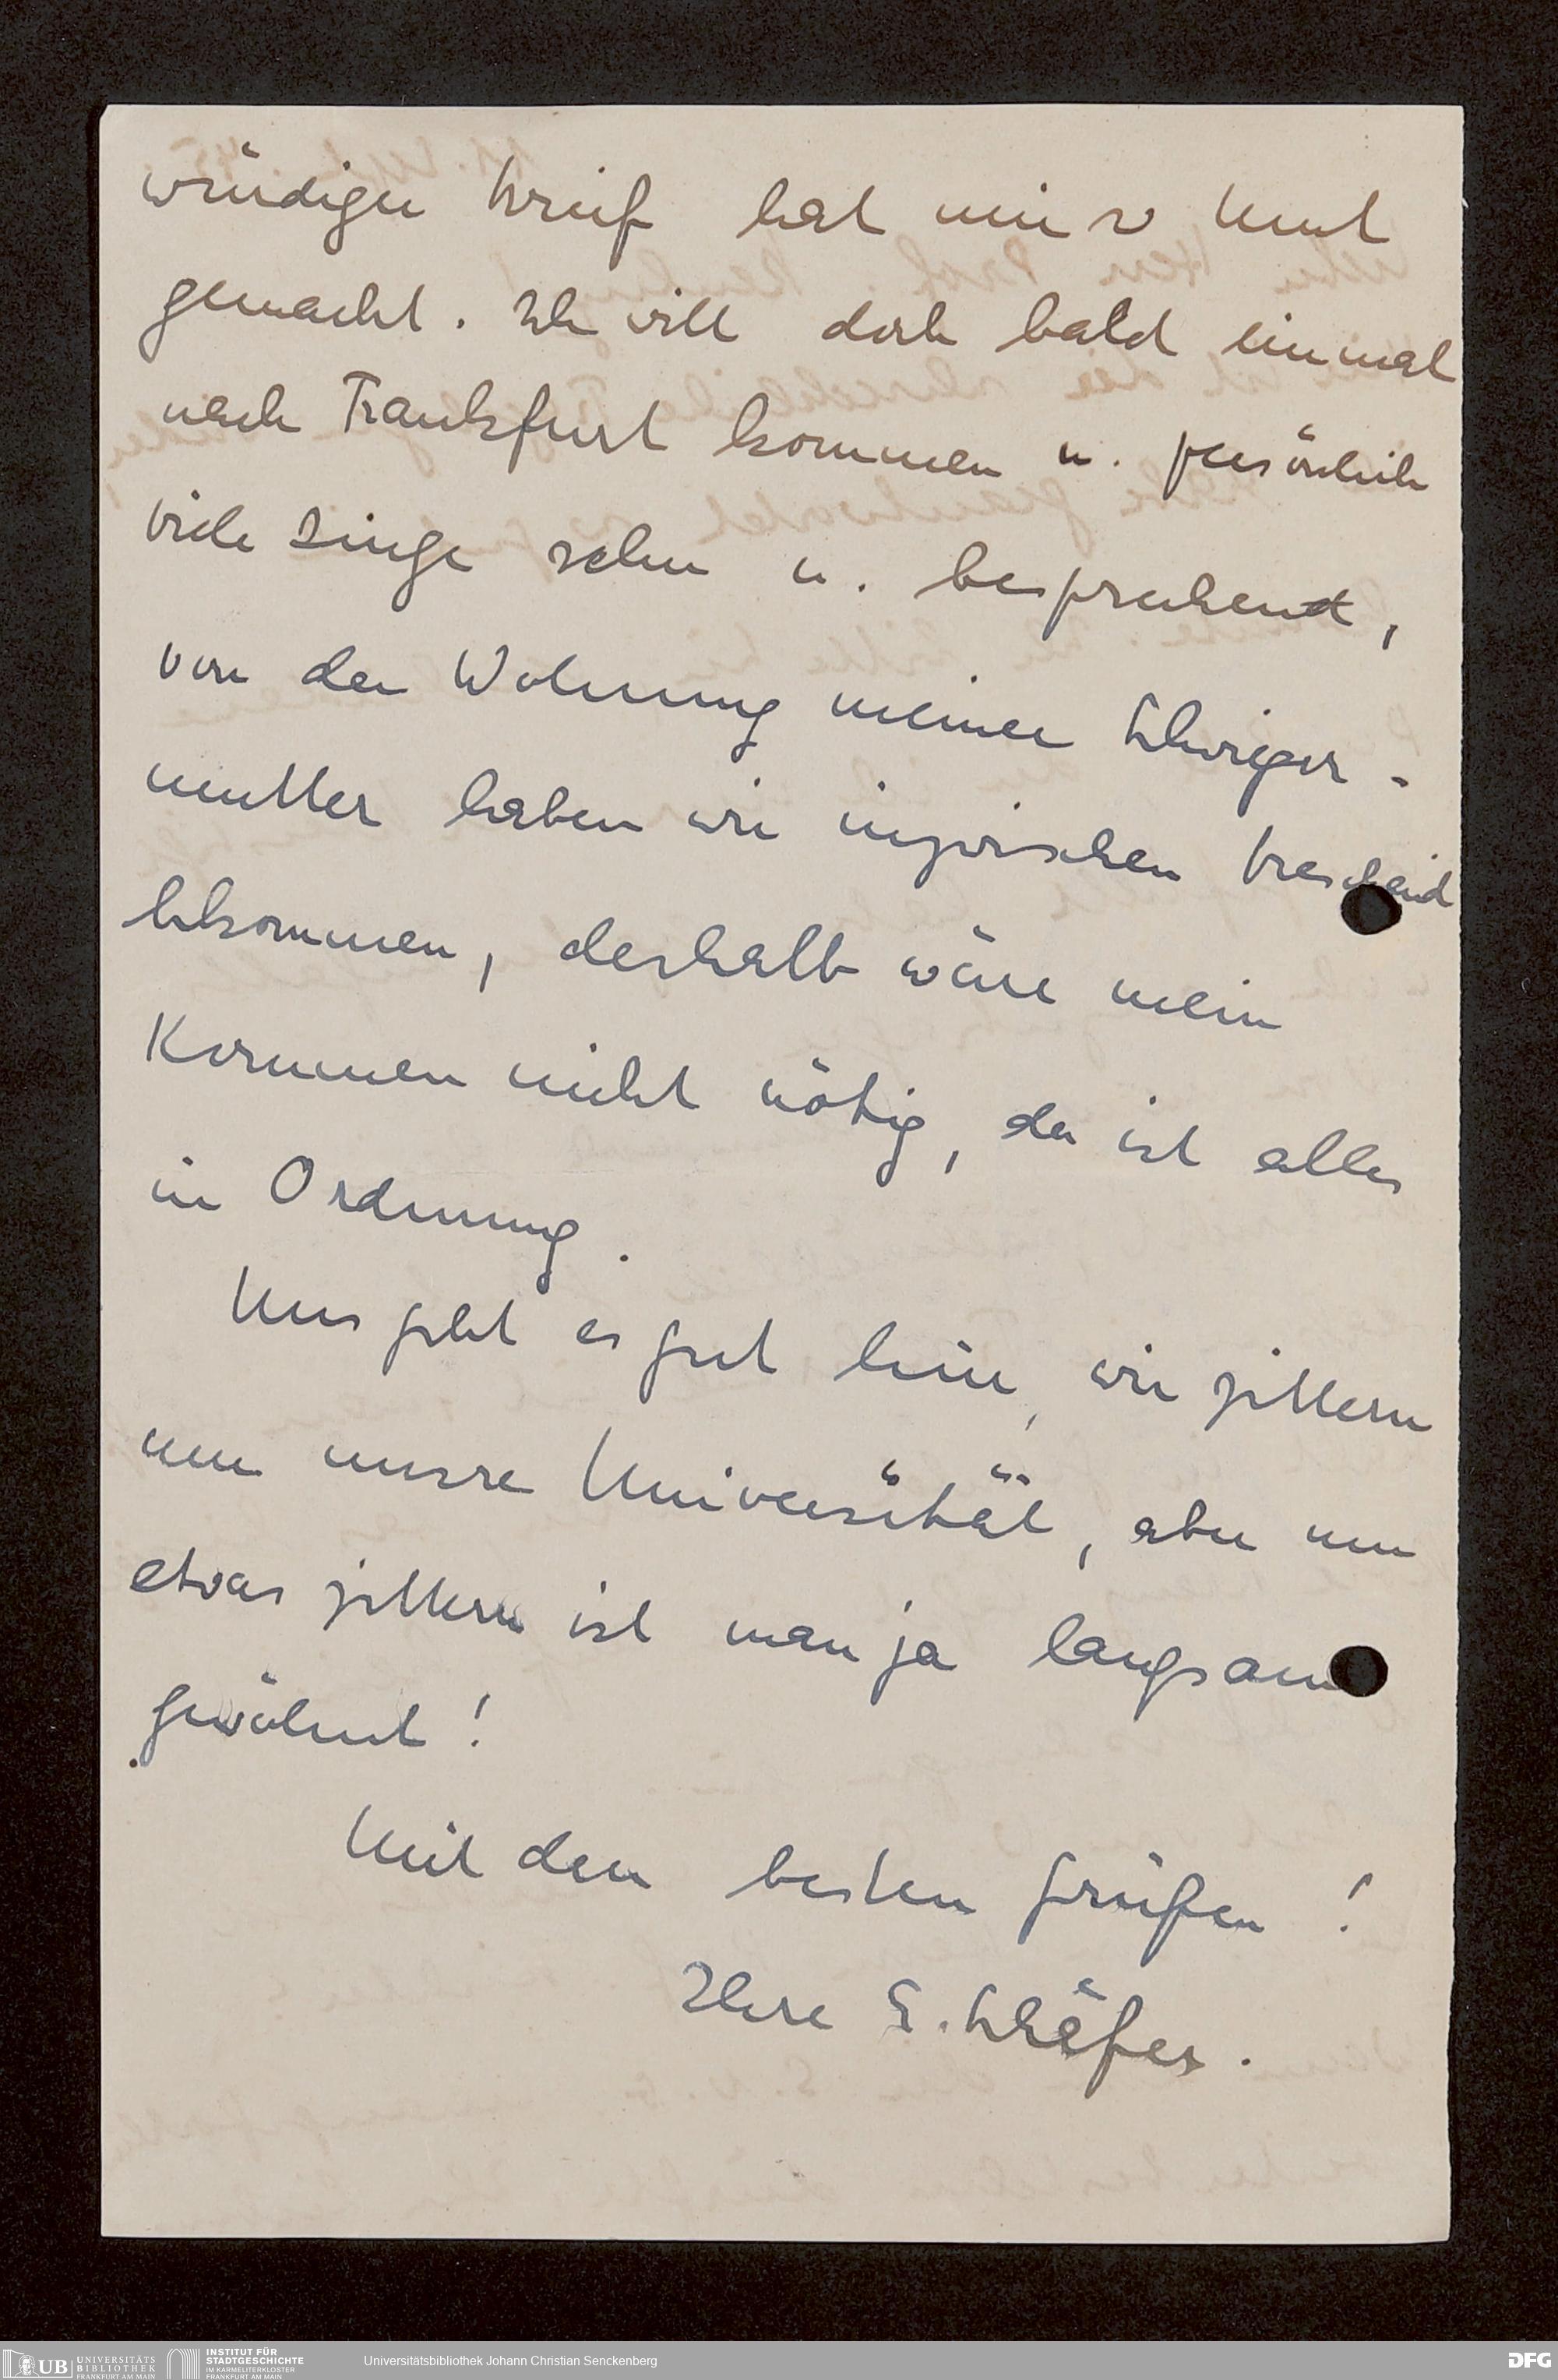 würdigen Brief hat mir so Mut
gemacht. Ich will doch bald einmal
nach Frankfurt kommen u. persönlich
viele Dinge sehn u. besprechen,
von der Wohnung meiner Schwieger-
mutter haben wir inzwischen Bescheid
bekommen, deshalb wäre mein
Kommen nicht nötig, da ist alles
in Ordnung.
Uns geht es gut hier, wir zittern
um unsre Universität, aber um
etwas zittern ist man ja langsam
gewöhnt!
Mit den besten Grüßen!
Ihre E. Schäfer.
UB UNIVERSITÄTS
BIBLIOTHEK
FRANKFURT AM MAIN
INSTITUT FÜR
STADTGESCHICHTE
IM KARMELITERKLOSTER
FRANKFURT AM MAIN
Universitätsbibliothek Johann Christian Senckenberg
DFG